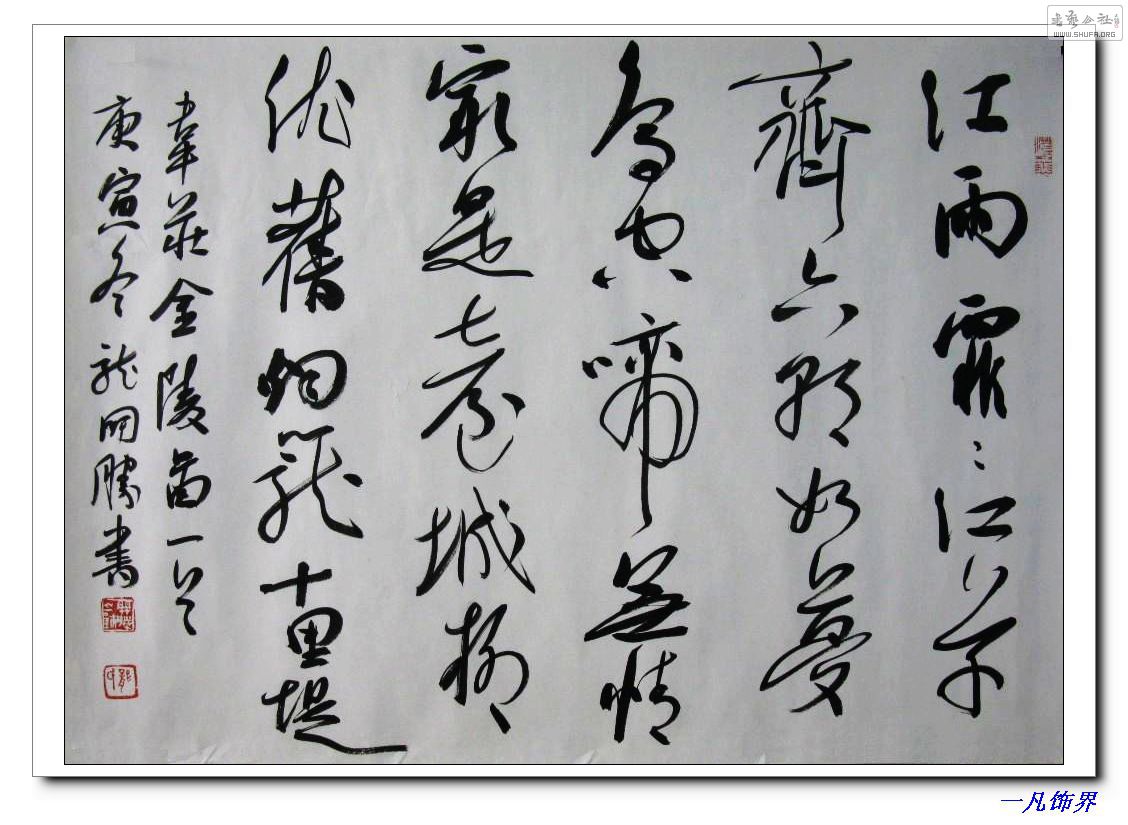 江雨霏〻江草
齊六朝如夢
鳥空啼無情
最是臺城柳
依舊烟籠十里堤
韋莊金陵圖一首
庚寅冬龍開勝書
书艺公社
WWW.SHUFA.ORG
一凡饰界